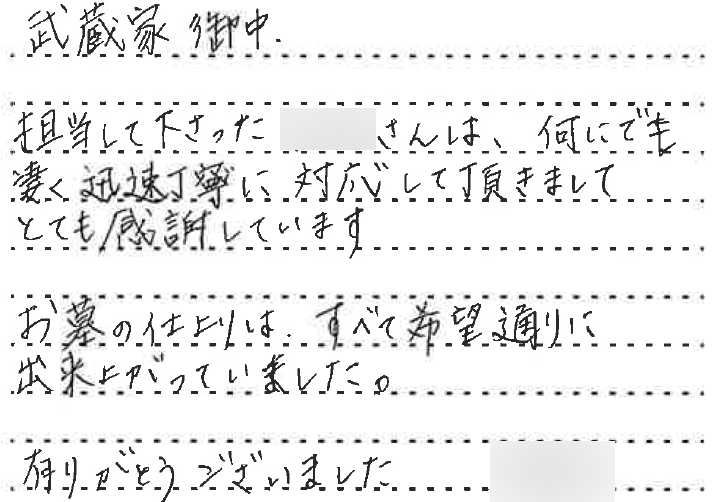 武蔵家 御中.
担当して下さった さんは、何にでも
凄く迅速丁寧に対応して頂きまして
とても感謝しています
お墓の仕上りは、すべて希望通りに
出来上がっていました。
有りがとうございました